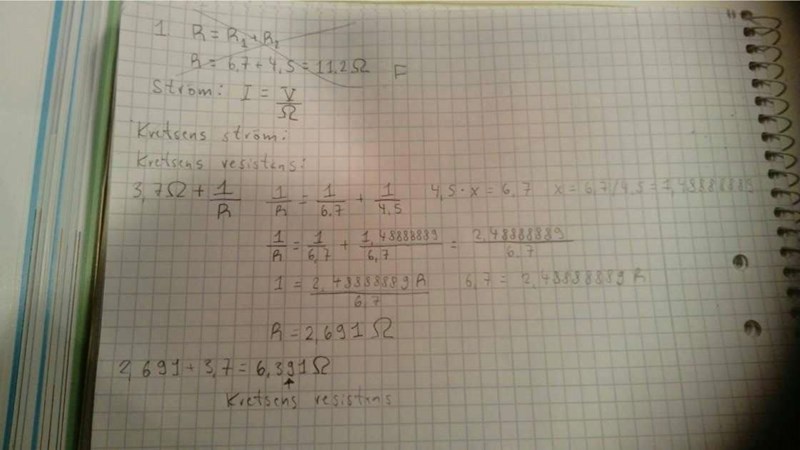 1 R = R₁ + R₂
R = 6,7 + 4,5 = 11,2Ω F
Ström: I = V/Ω
Kretsens ström:
Kretsens resistans:
3,7Ω + 1/R 1/R = 1/6,7 + 1/4,5 4,5 · x = 6,7 x = 6,7/4,5 = 1,48888889
1/R = 1/6,7 + 1,48888889/6,7 = 2,48888889/6,7
1 = 2,48888889R/6,7 6,7 = 2,48888889R
R = 2,691Ω
2,691 + 3,7 = 6,391Ω
Kretsens resistans